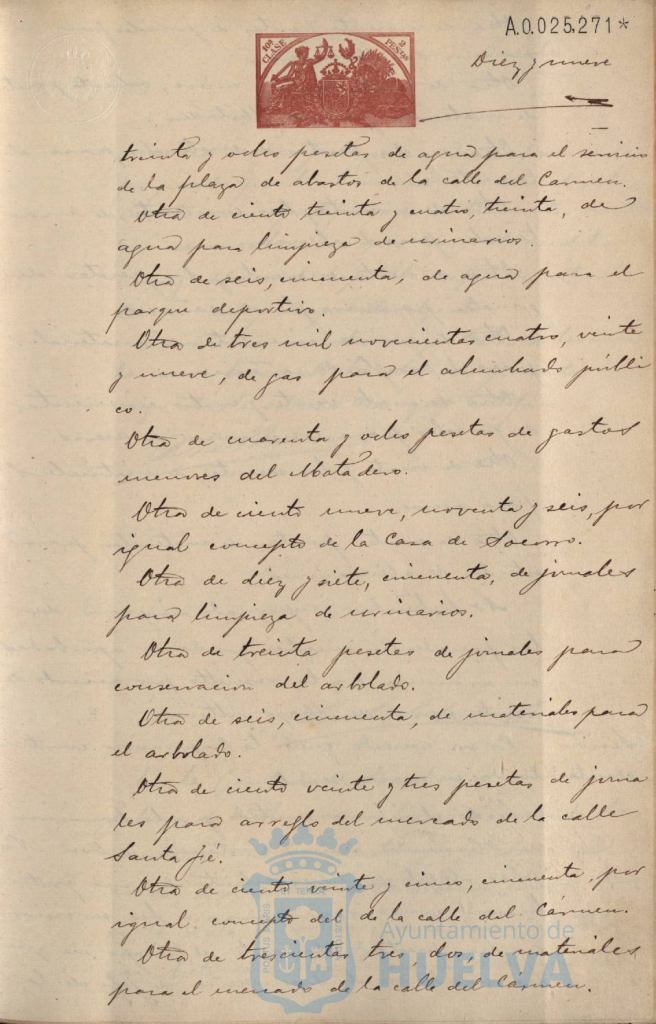 A.0.025.271*
10ª CLASE
2 PESETAS
Diez y nueve
treinta y ocho pesetas de agua para el servicio
de la plaza de abastos de la calle del Carmen.
Otra de ciento treinta y cuatro, treinta, de
agua para limpieza de urinarios.
Otra de seis, cincuenta, de agua para el
parque deportivo.
Otra de tres mil novecientas cuatro, veinte
y nueve, de gas para el alumbrado públi
co.
Otra de cuarenta y ocho pesetas de gastos
menores del Matadero.
Otra de ciento nueve, noventa y seis, por
igual concepto de la Casa de Socorro.
Otra de diez y siete, cincuenta, de jornales
para limpieza de urinarios.
Otra de treinta pesetas de jornales para
conservacion del arbolado.
Otra de seis, cincuenta, de materiales para
el arbolado.
Otra de ciento veinte y tres pesetas de jorna
les para arreglo del mercado de la calle
Santa Fé.
Otra de ciento veinte y cinco, cincuenta, por
igual concepto del de la calle del Cármen.
Otra de trescientas tres, dos, de materiales
para el mercado de la calle del Carmen.
Ayuntamiento de
HUELVA